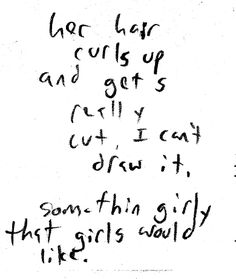 her hair
curls up
and gets
really
cut, I can't
draw it.
somethin girly
that girls would
like.